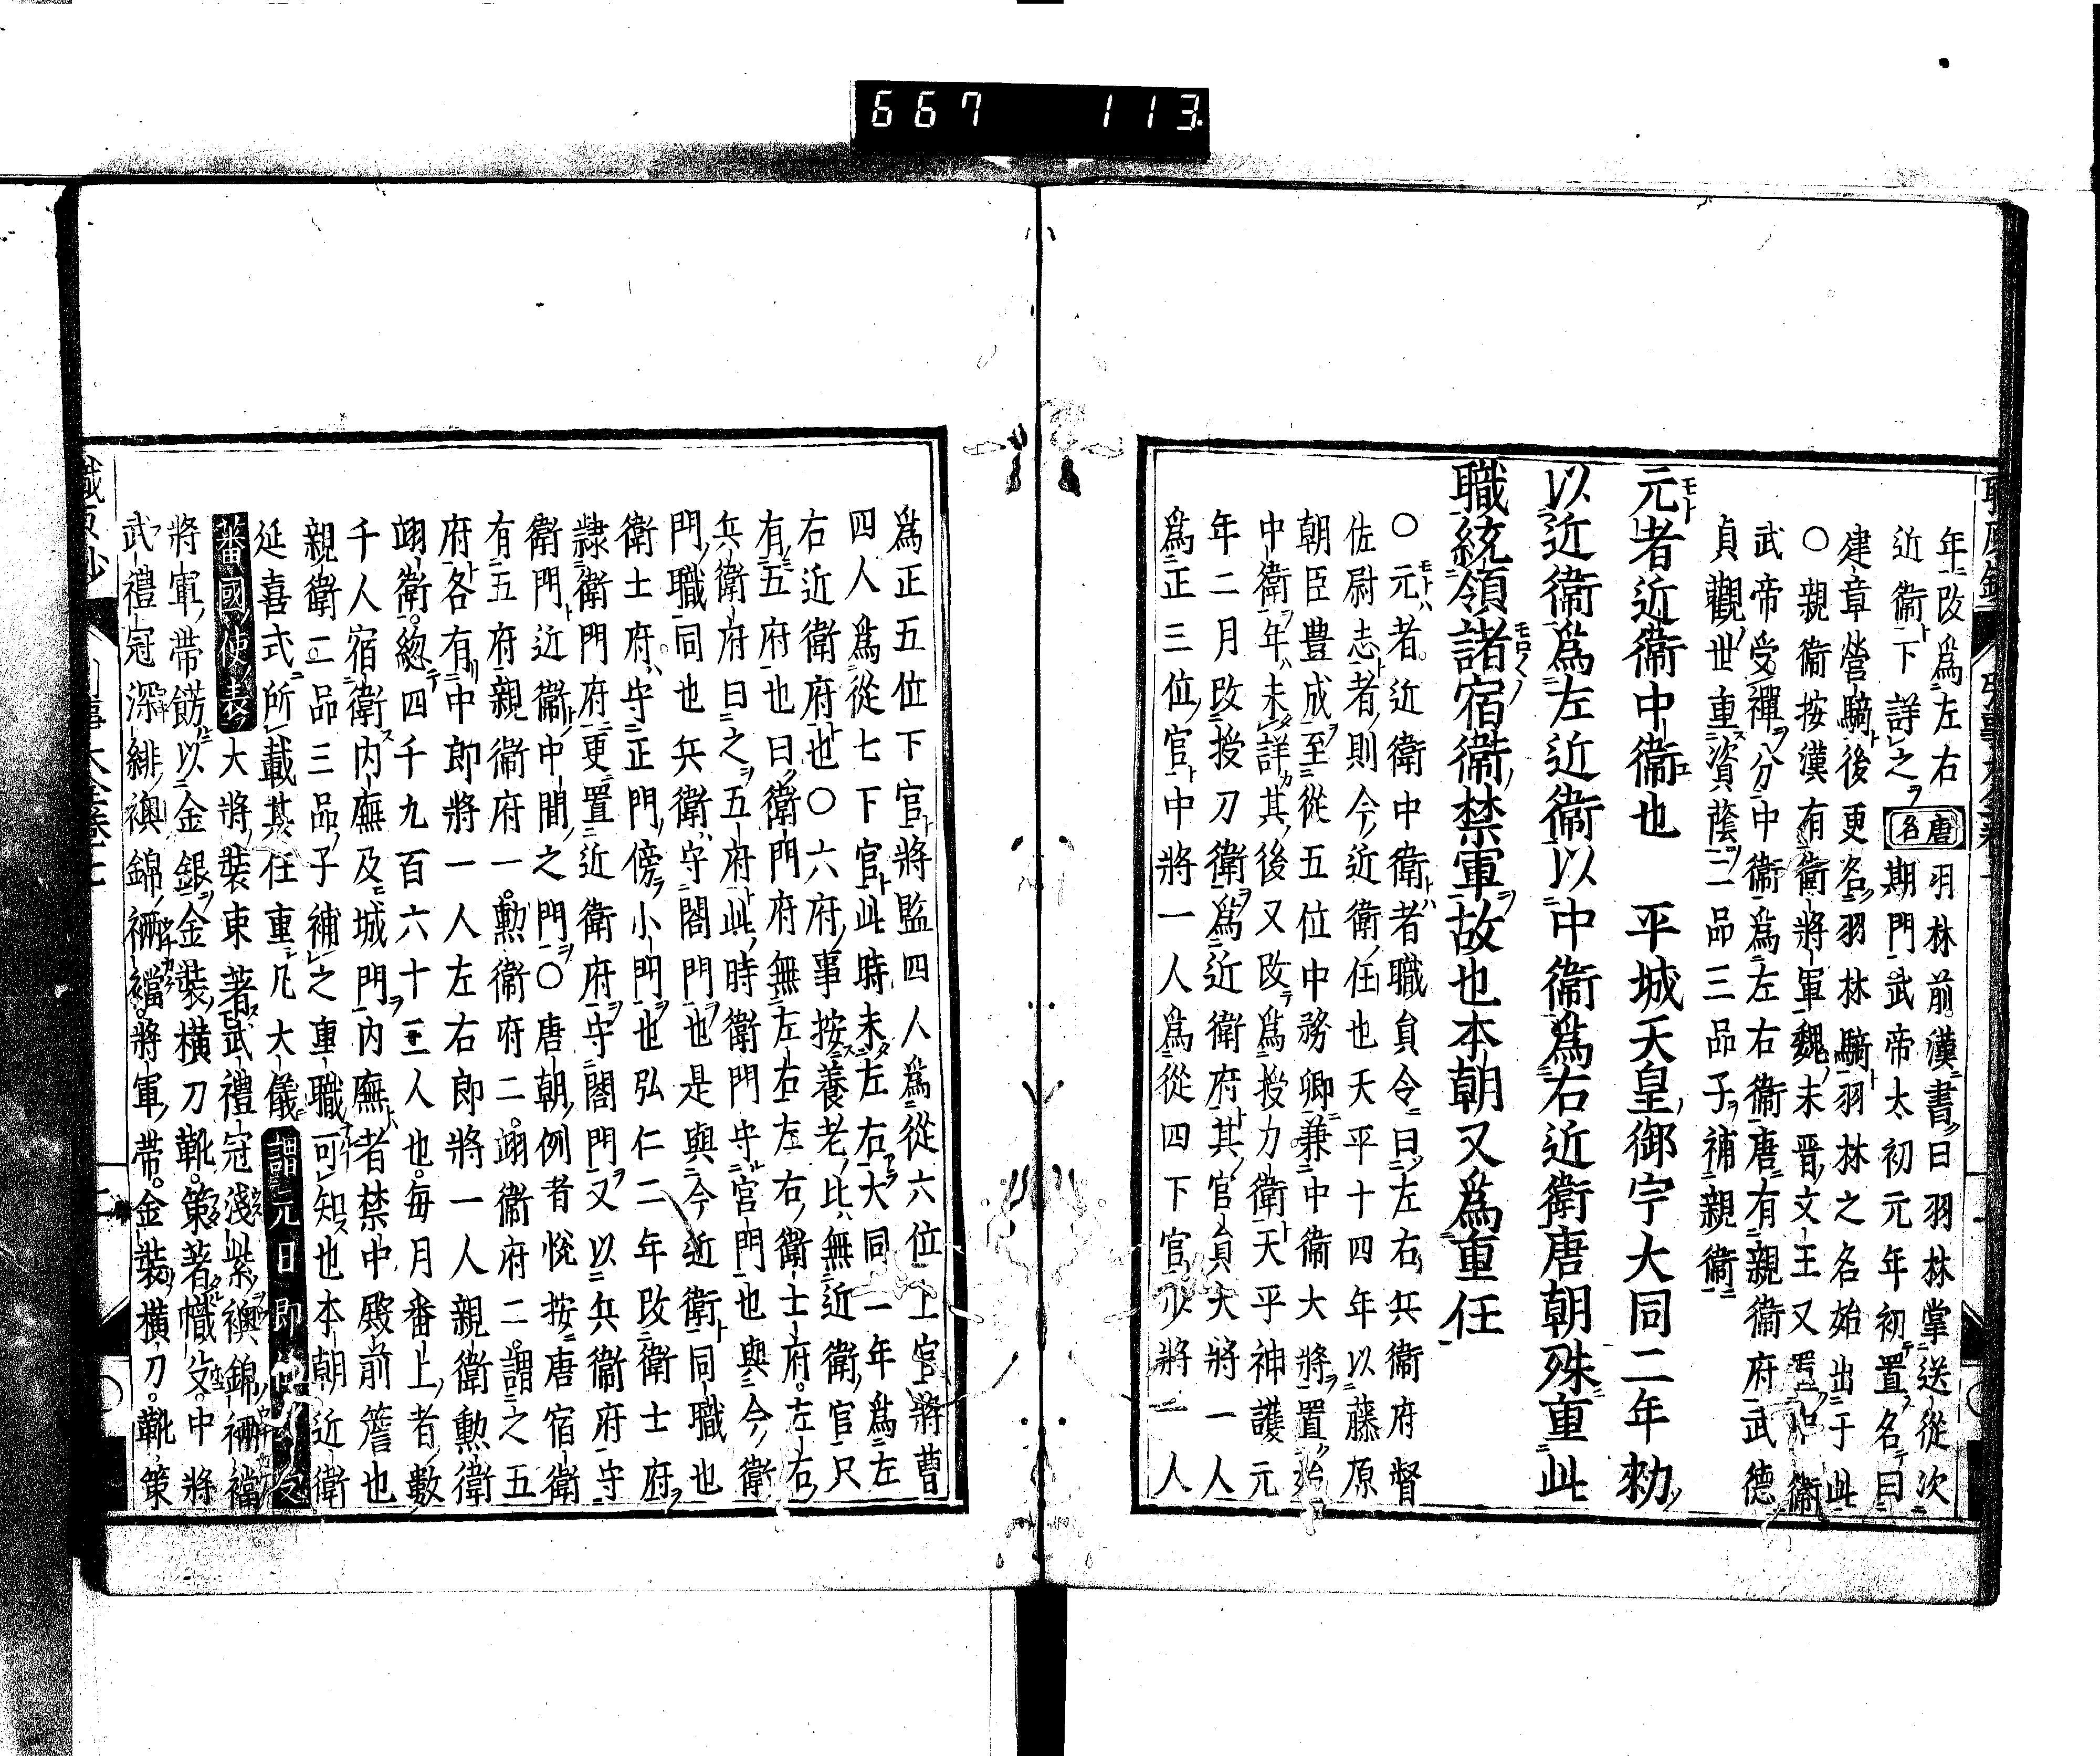 667 113
年改爲左右
近衞下詳之唐名期門武帝太初元年初置名曰
羽林前漢書曰羽林掌送從次
建章營騎後更名羽林騎羽林之名始出于此
○親衞按漢有衞將軍魏末晋文王又置中衞
武帝受禪分中衞爲左右衞唐有親衞府武德
貞觀世重資蔭二品三品子補親衞
元者近衞中衞也 平城天皇御宇大同二年勅
以近衞爲左近衞以中衞爲右近衞唐朝殊重此
職統領諸宿衞禁軍故也本朝又爲重任
○元者近衞中衞者職員令曰左右兵衞府督
佐尉志者則今近衞任也天平十四年以藤原
朝臣豊成至從五位中務卿兼中衞大將置始
中衞年未詳其後又改爲授刀衞天平神護元
年二月改授刀衞爲近衞府其官員大將一人
爲正三位官中將一人爲從四下官少將一人
爲正五位下官將監四人爲從六位上官將曹
四人爲從七下官此時未左右大同二年爲左
右近衞府也○六府事按養老比無近衞官尺
有五府也曰衞門府無左右左右衞士府左右
兵衞府曰之五府此時衞門守宮門也與今衞
門職同也兵衞守閤門也是與今近衞同職也
衞士府守正門傍小門也弘仁二年改衞士府
隷衞門府更置近衞府守閤門又以兵衞府守
衞門近衞中間之門○唐朝例者悅按唐宿衞
有五府親衞府一勳衞府二翊衞府二謂之五
府各有中郎將一人左右郎將一人親衞勲衞
翊衞總四千九百六十三人也毎月番上者數
千人宿衞内廡及城門内廡者禁中殿前簷也
親衞二品三品子補之重職可知也本朝近衞
延喜式所載其任重凡大儀謂元日即位及
蕃國使表大將裝束著武禮冠淺紫襖錦裲襠
將軍帶餝以金銀金裝横刀靴策著幟殳中將
武禮冠深緋襖錦裲襠將軍帶金裝横刀靴策